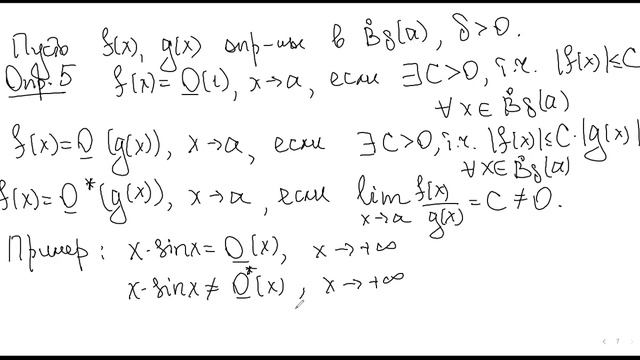 Пусть f(x), g(x) опр-ны в B̊δ(a), δ>0.
Опр.5 f(x)=O(1), x→a, если ∃C>0, т.ч. |f(x)|≤C
∀x∈B̊δ(a)
f(x)=O(g(x)), x→a, если ∃C>0, т.ч. |f(x)|≤C·|g(x)|
∀x∈B̊δ(a)
f(x)=O*(g(x)), x→a, если lim x→a f(x)/g(x) = C≠0.
Пример: x·sinx=O(x), x→+∞
x·sinx≠O*(x), x→+∞
7